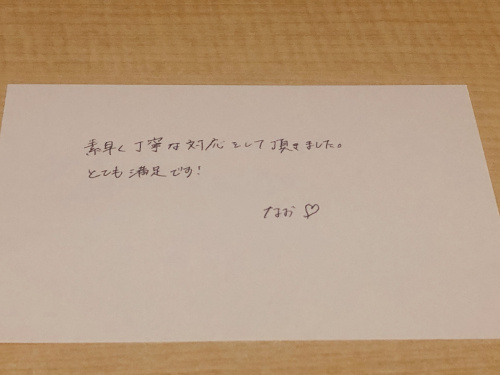 素早く丁寧な対応をして頂きました。
とても満足です!
なお♡